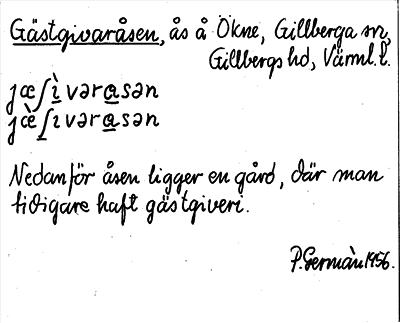 Gästgivaråsen, ås å Ökne, Gillberga sn,
Gillbergs hd, Värml. l.
jæʃìvərasən
jæ̀ʃivərasən
Nedanför åsen ligger en gård, där man
tidigare haft gästgiveri.
P. Germàn 1956.